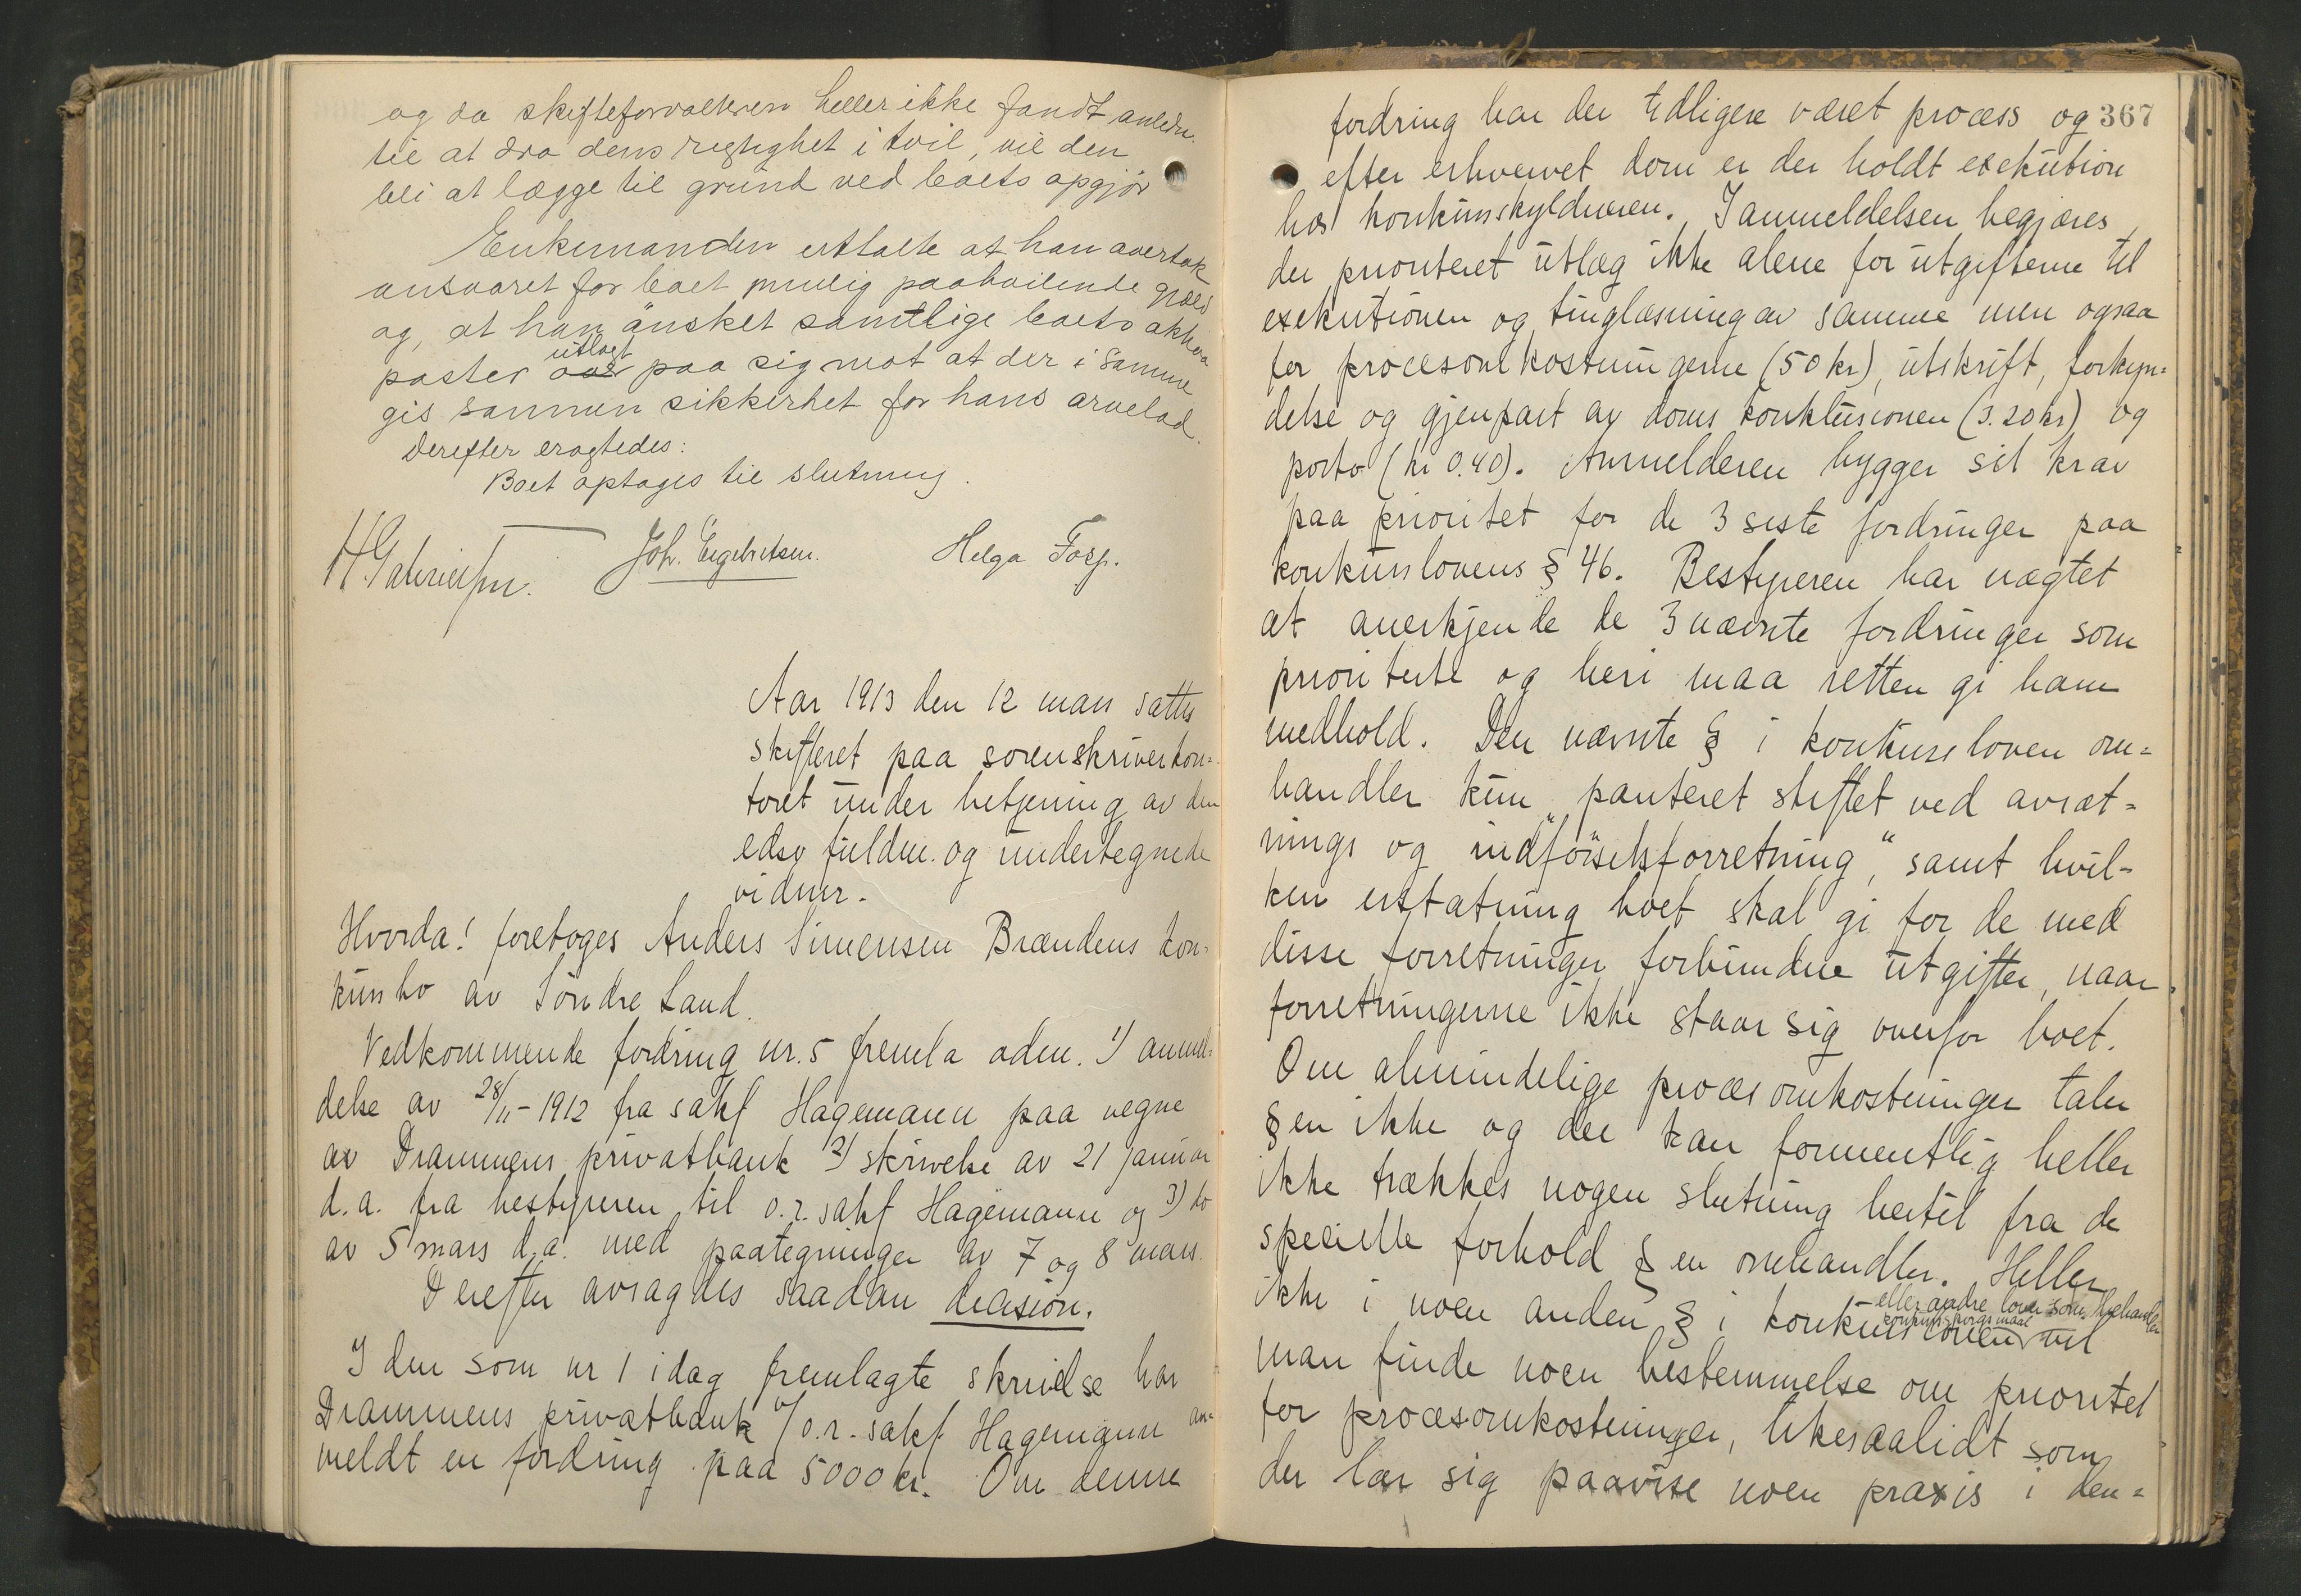 og da skifteforvalteren heller ikke fandt anledn.
til at dra dens rigtighet i tvil, vil den
bli at lægge til grund ved boets opgjör
Enkemanden uttalte at han overtok
ansvaret for boet mulig paahvilende gjæld
og, at han önsket samtlige boets aktiva
utlagt
poster over paa sig mot at der i samme
gis sønnen sikkerhet for hans arvelod.
Derefter eragtedes:
Boet optages til slutning.
H Gabrielsen. Joh. Engebretsen. Helga Fosp.
Aar 1913 den 12 mars sattes
skifteret paa sorenskriverkon=
toret under betjening av den
edsv fuldm. og undertegnede
vidner.
Hvorda! foretoges Anders Simensen Brændens kon=
kursbo av Söndre Land.
Vedkommende fordring nr. 5 fremla adm. 1) anmel=
delse av 28/11-1912 fra sakf Hagemann paa vegne
av Drammens privatbank 2) skrivelse av 21 januar
d.a. fra bestyreren til o.r.sakf Hagemann og 3) do
av 5 mars d.a. med paategninger av 7 og 8 mars.
Derefter avsagdes saadan decision.
I den som nr 1 idag fremlagte skrivelse har
Drammens privatbank v/ o.r.sakf. Hagemann an=
meldt en fordring paa 5000 kr. Om denne
367
fordring har der tidligere været process og
efter erhvervet dom er der holdt exekution
hos konkursskyldneren. I anmeldelsen begjæres
der prioriteret utlæg ikke alene for utgifterne til
exekutionen og tinglæsning av samme men ogsaa
for procesomkostningerne (50 kr), utskrift, forkyn=
delse og gjenpart av doms konklusionen (3.20 kr) og
porto (kr 0.40). Anmelderen bygger sit krav
paa prioritet for de 3 siste fordringer paa
konkurslovens § 46. Bestyreren har nægtet
at anerkjende de 3 nævnte fordringer som
prioriterte og heri maa retten gi ham
medhold. Den nævnte § i konkursloven om=
handler kun „panteret stiftet ved avsæt=
nings og indförselsforretning“, samt hvil=
ken erstatning boet skal gi for de med
disse forretninger forbundne utgifter, naar
forretningerne ikke staar sig overfor boet.
Om almindelige procesomkostninger taler
§en ikke og der kan formentlig heller
ikke trækkes nogen slutning hertil fra de
specielle forhold §en omhandler. Heller
eller andre love som omhandler
konkursspörgsmaal
ikke i noen anden § i konkursloven vil
man finde noen bestemmelse om prioritet
for procesomkostninger, likesaalidt som
der lar sig paavise noen praxis i den=